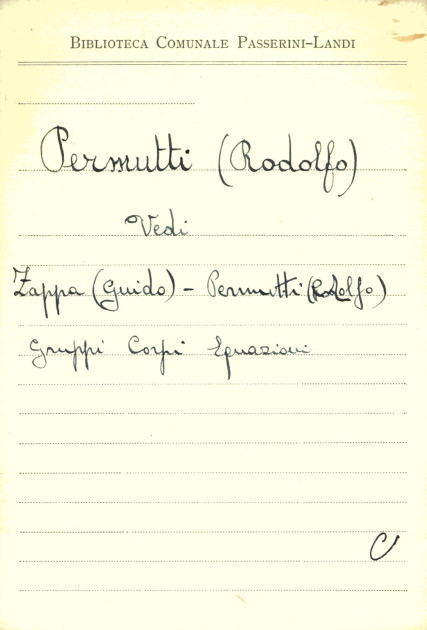 BIBLIOTECA COMUNALE PASSERINI-LANDI
Permutti (Rodolfo)
Vedi
Zappa (Guido) - Permutti (Rodolfo)
Gruppi Corpi Equazioni
C